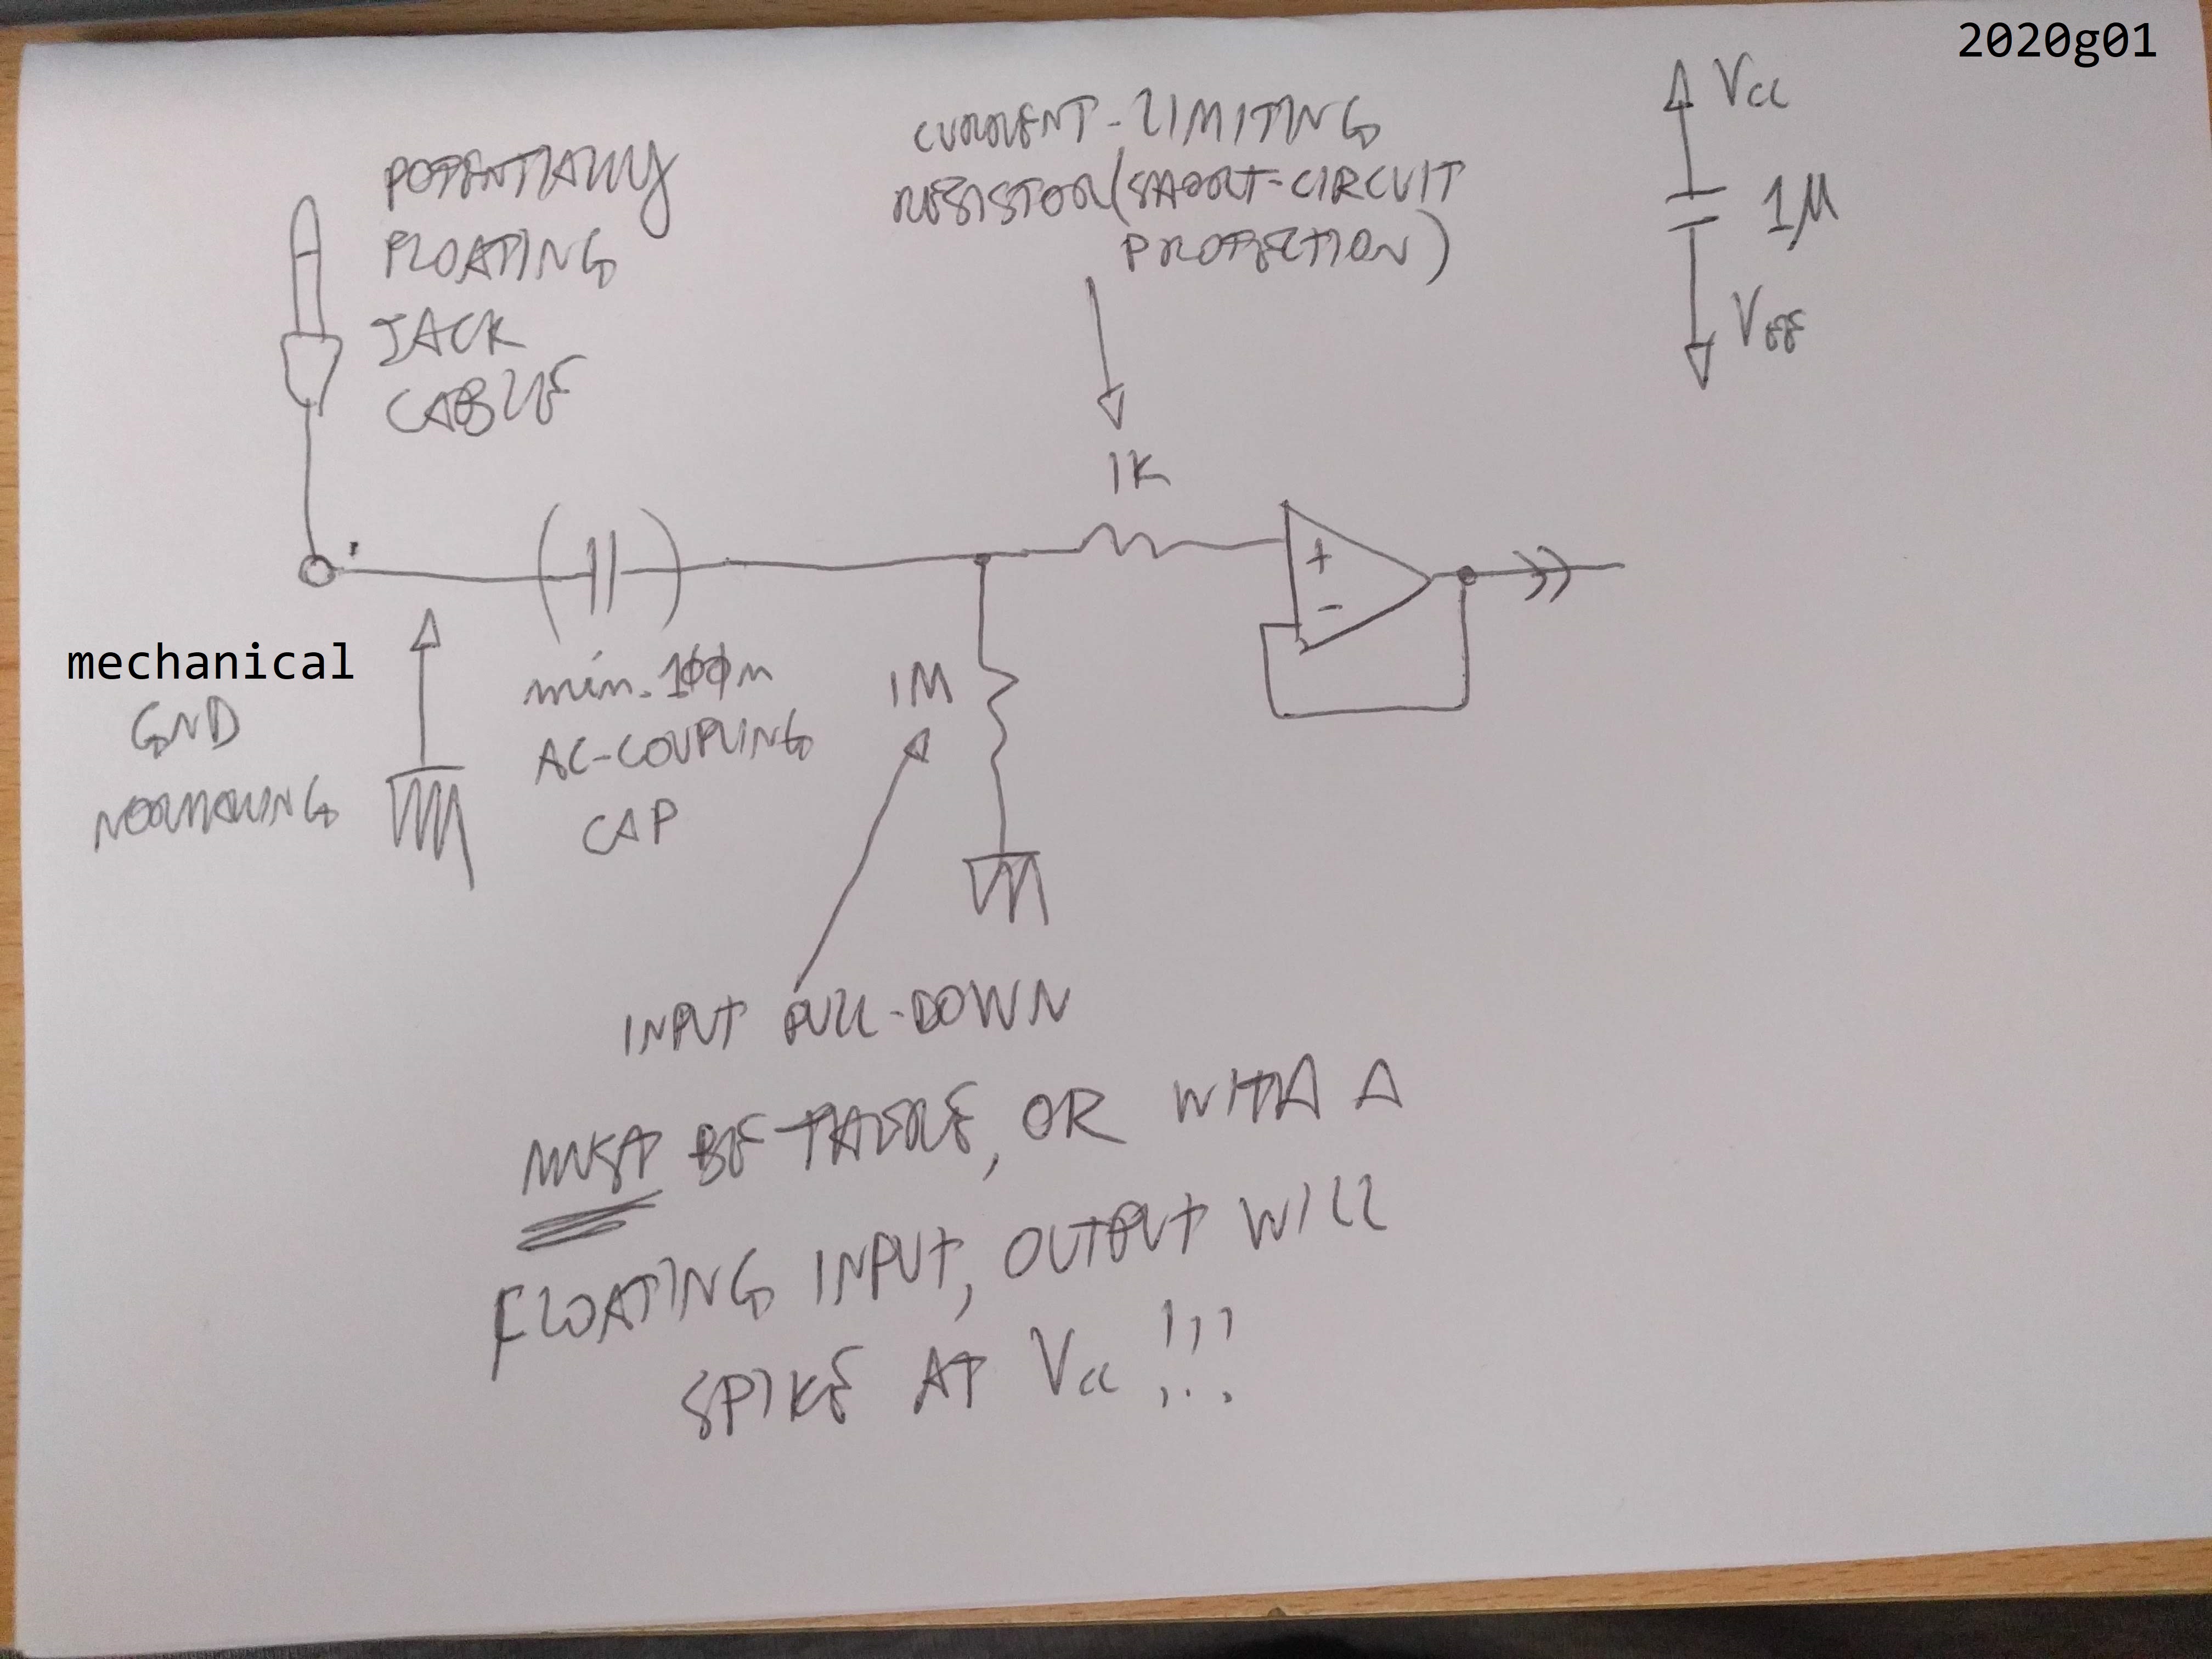 2020g01
POTENTIALLY
FLOATING
JACK
CABLE
CURRENT-LIMITING
RESISTOR (SHORT-CIRCUIT
PROTECTION)
VCC
1µ
VEE
1K
+
-
mechanical
GND
NORMALLING
min. 100n
AC-COUPLING
CAP
1M
INPUT PULL-DOWN
MUST BE THERE, OR WITH A
FLOATING INPUT, OUTPUT WILL
SPIKE AT VCC !!!